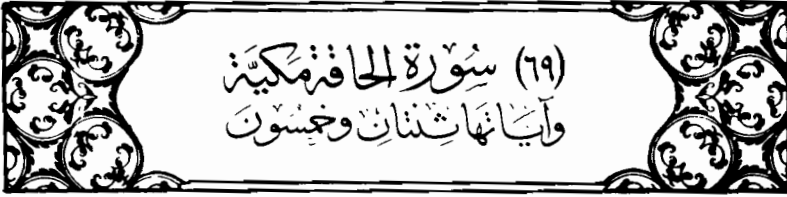 (٦٩) سُورَة الحَاقَّة مَكيَّة
وَآيَاتهَا ثِنتَانِ وَخَمسُونَ